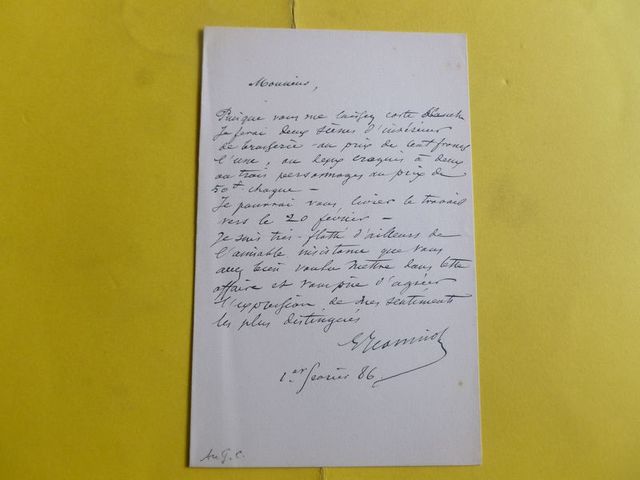 Monsieur,
Puisque vous me laissez carte blanche
Je ferai deux scènes d'intérieur
de brasserie au prix de cent francs
l'une, ou deux croquis à deux
ou trois personnages au prix de
50 f. chaque -
Je pourrai vous livrer le travail
vers le 20 février -
Je suis très-flatté d'ailleurs de
l'aimable insistance que vous
avez bien voulu mettre dans cette
affaire et vous prie d'agréer
l'expression de mes sentiments
les plus distingués
1er février 86